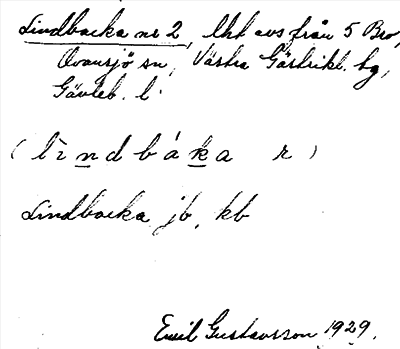 Lindbacka nr 2, lht avs från 5 Bro,
Ovansjö sn, Västra Gästrikl. hg,
Gävleb. l.
(lìndbáka r)
Lindbacka jb, kb
Emil Gustavsson 1929.